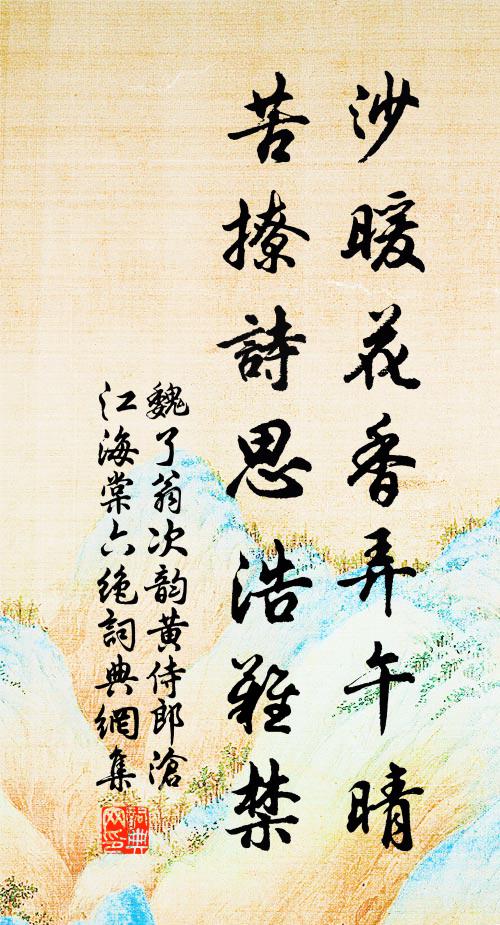 沙暖花香弄午晴
苦撩詩思浩難禁
魏了翁次韵黄侍郎滄
江海棠六绝詞典網集